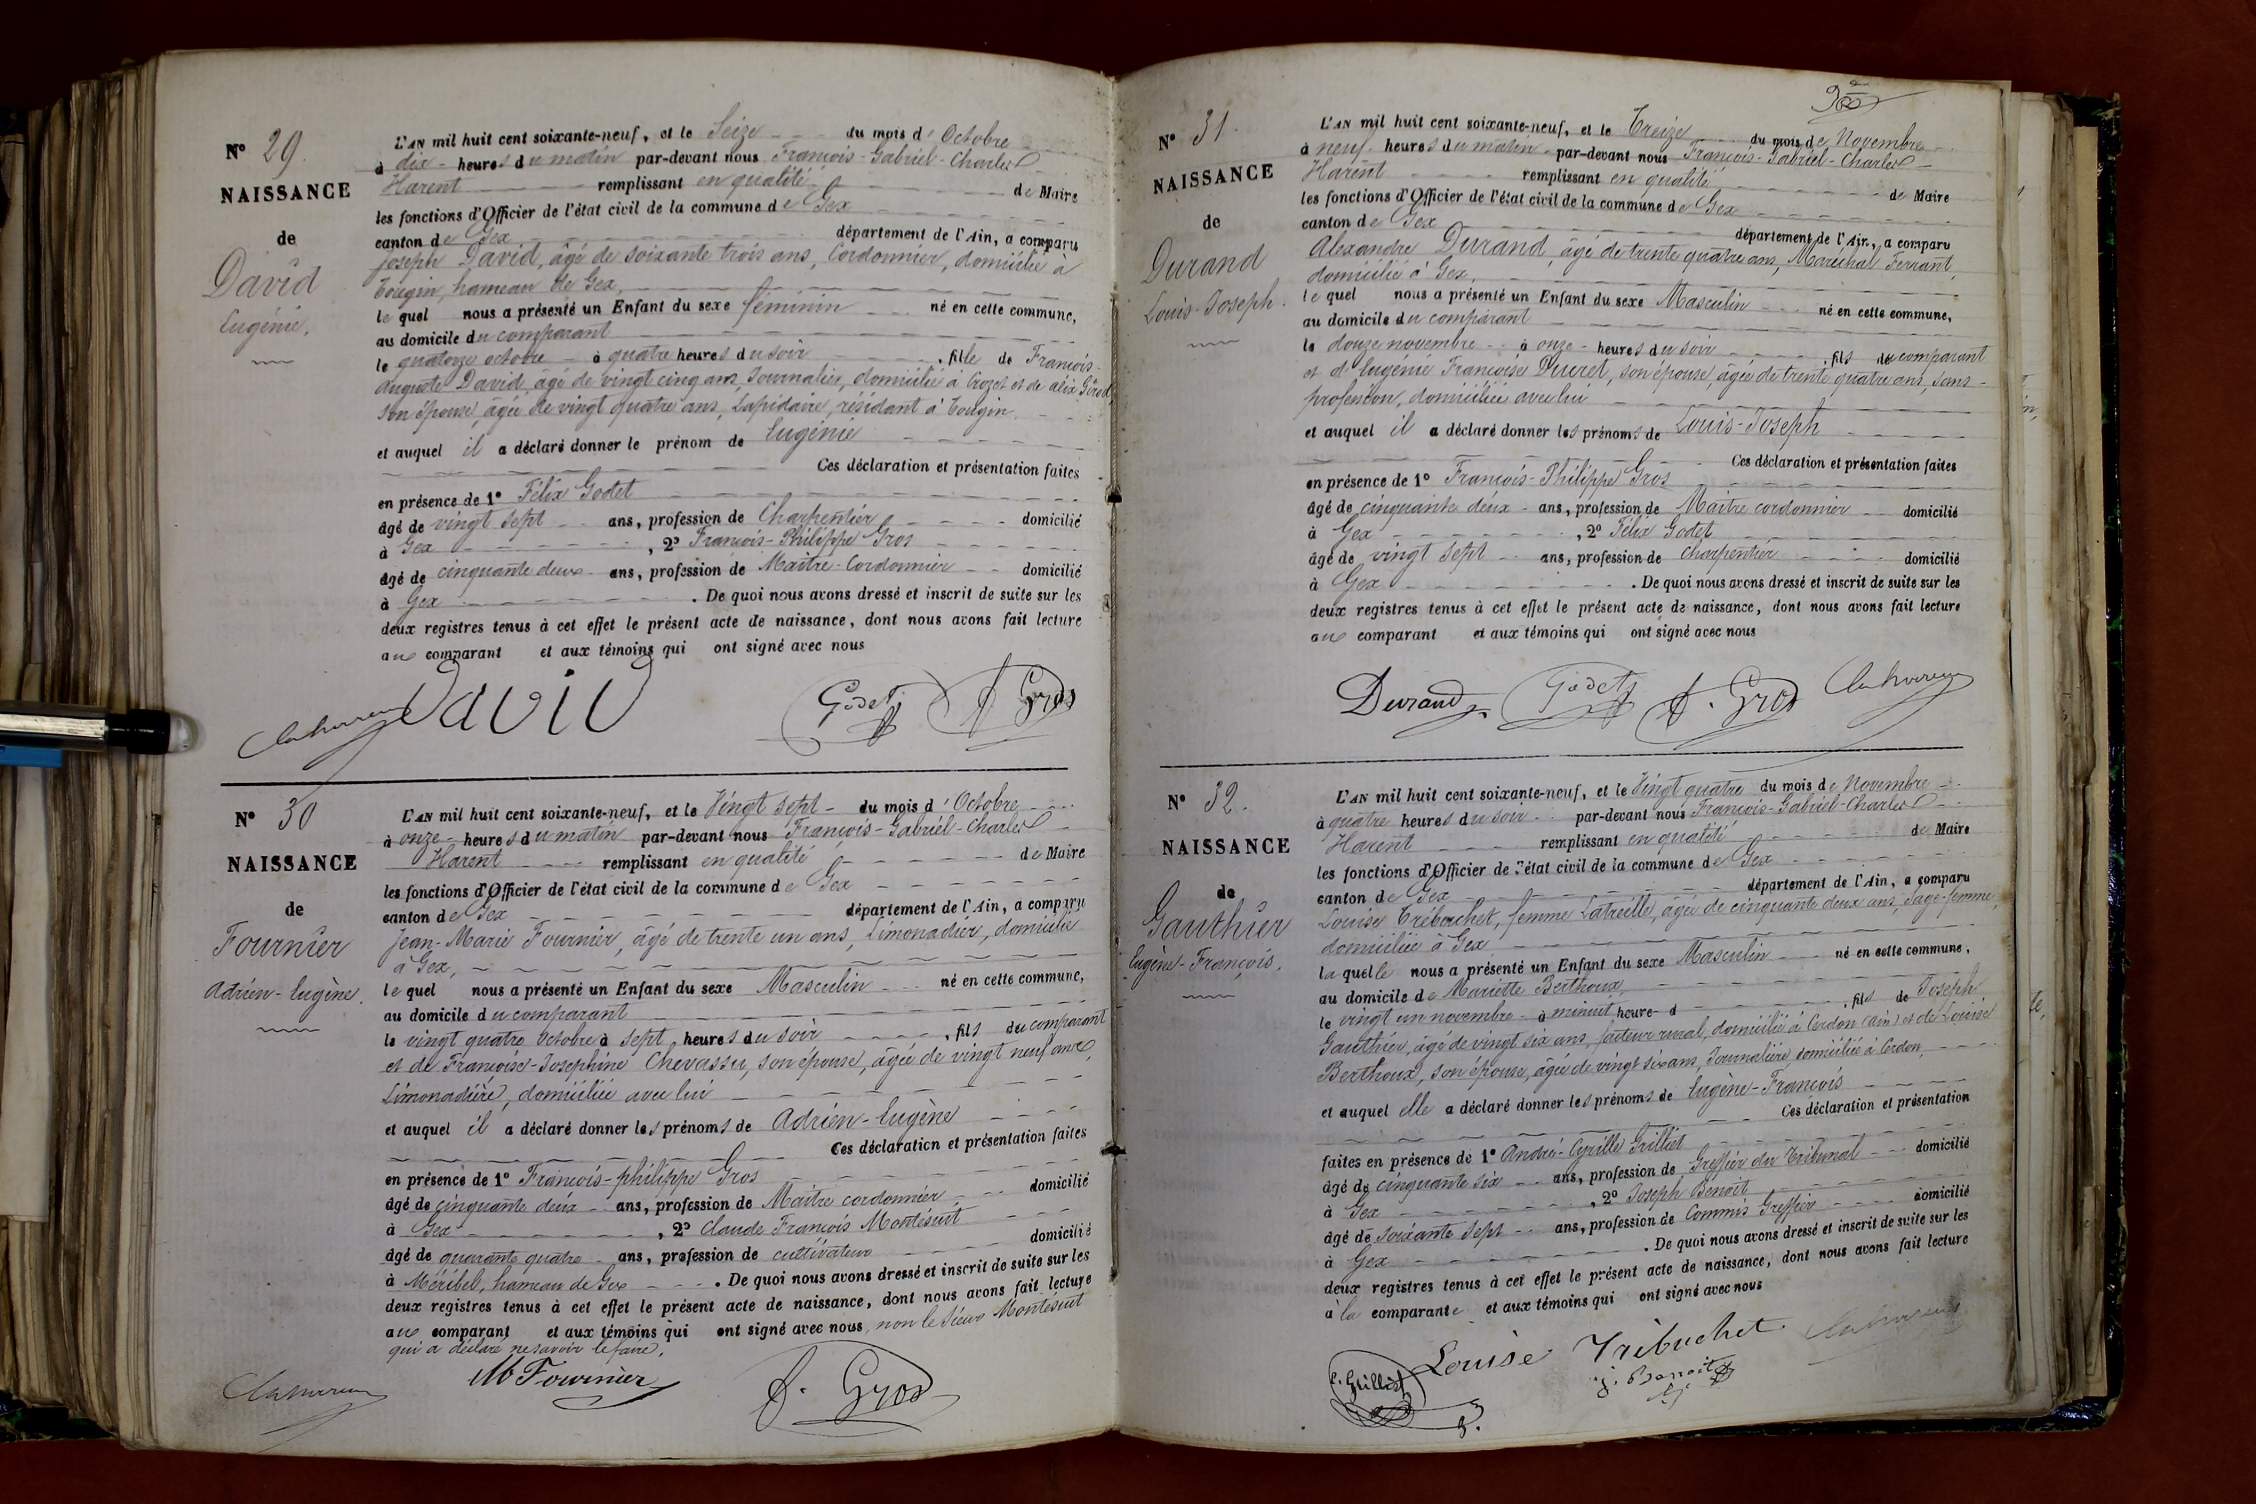 N° 29.
NAISSANCE
de
David
Eugénie.
L'AN mil huit cent soixante-neuf, et le Seize du mois d' Octobre
à dix heures du matin par-devant nous François-Gabriel-Charles
Harent remplissant en qualité de Maire
les fonctions d'Officier de l'état civil de la commune de Gex
canton de Gex département de l'Ain, a comparu
Joseph David, âgé de soixante trois ans, Cordonnier, domicilié à
Tougin, hameau de Gex,
lequel nous a présenté un Enfant du sexe féminin né en cette commune,
au domicile du comparant
le quatorze octobre à quatre heures du soir, fille de François-
Auguste David, âgé de vingt cinq ans, Journalier, domicilié à Crozet et de alix Girod,
son épouse, âgée de vingt quatre ans, Lapidaire, résidant à Tougin,
et auquel il a déclaré donner le prénom de Eugénie
Ces déclaration et présentation faites
en présence de 1° Félix Godet
âgé de vingt sept ans, profession de Charpentier domicilié
à Gex, 2° François-Philippe Gros
âgé de cinquante deux ans, profession de Maître-Cordonnier domicilié
à Gex. De quoi nous avons dressé et inscrit de suite sur les
deux registres tenus à cet effet le présent acte de naissance, dont nous avons fait lecture
au comparant et aux témoins qui ont signé avec nous
David Godet f. Gros
N° 30
NAISSANCE
de
Fournier
Adrien-Eugène.
L'AN mil huit cent soixante-neuf, et le Vingt sept du mois d' Octobre
à onze heures du matin par-devant nous François-Gabriel-Charles
Harent remplissant en qualité de Maire
les fonctions d'Officier de l'état civil de la commune de Gex
canton de Gex département de l'Ain, a comparu
Jean-Marie Fournier, âgé de trente un ans, Limonadier, domicilié
à Gex,
lequel nous a présenté un Enfant du sexe Masculin né en cette commune,
au domicile du comparant
le vingt quatre Octobre à sept heures du soir, fils du comparant
et de Françoise-Josephine Chevassu, son épouse, âgée de vingt neuf ans,
Limonadière, domiciliée avec lui
et auquel il a déclaré donner les prénoms de Adrien-Eugène
Ces déclaration et présentation faites
en présence de 1° François-philippe Gros
âgé de cinquante deux ans, profession de Maître cordonnier domicilié
à Gex, 2° Claude François Montésuit
âgé de quarante quatre ans, profession de cultivateur domicilié
à Méribel, hameau de Gex. De quoi nous avons dressé et inscrit de suite sur les
deux registres tenus à cet effet le présent acte de naissance, dont nous avons fait lecture
au comparant et aux témoins qui ont signé avec nous, non le Sieur Montésuit
qui a déclaré ne savoir le faire.
M Fournier f. Gros
N° 31.
NAISSANCE
de
Durand
Louis-Joseph.
L'AN mil huit cent soixante-neuf, et le Treize du mois de Novembre
à neuf heures du matin par-devant nous François-Gabriel-Charles
Harent remplissant en qualité de Maire
les fonctions d'Officier de l'état civil de la commune de Gex
canton de Gex département de l'Ain, a comparu
Alexandre Durand, âgé de trente quatre ans, Maréchal Ferrant,
domicilié à Gex,
lequel nous a présenté un Enfant du sexe Masculin né en cette commune,
au domicile du comparant
le douze novembre à onze heures du soir, fils du comparant
et d'Eugénie Françoise Ducret, son épouse, âgée de trente quatre ans, sans
profession, domiciliée avec lui
et auquel il a déclaré donner les prénoms de Louis-Joseph
Ces déclaration et présentation faites
en présence de 1° François-Philippe Gros
âgé de cinquante deux ans, profession de Maître cordonnier domicilié
à Gex, 2° Félix Godet
âgé de vingt sept ans, profession de charpentier domicilié
à Gex. De quoi nous avons dressé et inscrit de suite sur les
deux registres tenus à cet effet le présent acte de naissance, dont nous avons fait lecture
au comparant et aux témoins qui ont signé avec nous
Durand Godet f. Gros
N° 32.
NAISSANCE
de
Gauthier
Eugène-François.
L'AN mil huit cent soixante-neuf, et le Vingt quatre du mois de Novembre
à quatre heures du soir par-devant nous François-Gabriel-Charles
Harent remplissant en qualité de Maire
les fonctions d'Officier de l'état civil de la commune de Gex
canton de Gex département de l'Ain, a comparu
Louise Trébuchet, femme Latreille, âgée de cinquante deux ans, Sage-femme,
domiciliée à Gex
laquelle nous a présenté un Enfant du sexe Masculin né en cette commune,
au domicile de Mariette Berthoux,
le vingt un novembre à minuit heure d, fils de Joseph
Gauthier, âgé de vingt six ans, facteur rural, domicilié à Cordon (ain) et de Louise
Berthoux, son épouse, âgée de vingt six ans, Journalière domiciliée à Cordon,
et auquel elle a déclaré donner les prénoms de Eugène-François
Ces déclaration et présentation
faites en présence de 1° André-Cyrille Grilliet
âgé de cinquante six ans, profession de Greffier du Tribunal domicilié
à Gex, 2° Joseph Benoit
âgé de soixante sept ans, profession de Commis Greffier domicilié
à Gex. De quoi nous avons dressé et inscrit de suite sur les
deux registres tenus à cet effet le présent acte de naissance, dont nous avons fait lecture
à la comparante et aux témoins qui ont signé avec nous
Louise Trébuchet
C. Grilliet J. Benoit